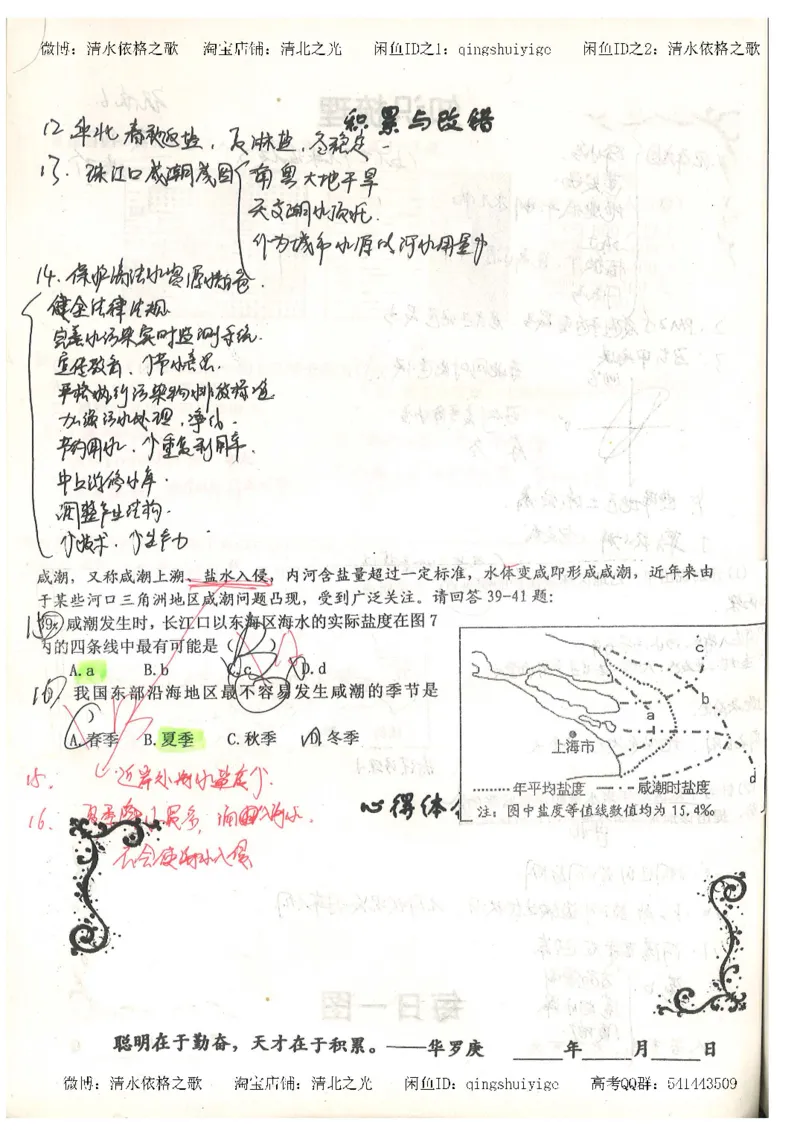 微博：清水依格之歌 淘宝店铺：清北之光 闲鱼ID之1：qingshuiyige 闲鱼ID之2：清水依格之歌
积累与改错
12. 华北春秋返盐，夏淋盐，冬稳定
13. 珠江口咸潮成因
南粤大地干旱
天文潮水顶托
作为城市水源以河水用量少
14. 保护
健全法律法规
完善水污染实时监测系统
宣传教育，个节水意识
严格执行污染物排放标准
加强污水处理，净化
节约用水，个重复利用率
中上游修水库
调整产业结构
个技术，个生产力
咸潮，又称咸潮上溯、盐水入侵，内河含盐量超过一定标准，水体变咸即形成咸潮，近年来由
于某些河口三角洲地区咸潮问题凸现，受到广泛关注。请回答 39-41 题：
39. 咸潮发生时，长江口以东海区海水的实际盐度在图 7
内的四条线中最有可能是（ ）
A. a B. b C. c D. d
我国东部沿海地区最不容易发生咸潮的季节是
（ ）
A. 春季 B. 夏季 C. 秋季 D. 冬季
c
b
a
d
上海市
年平均盐度 咸潮时盐度
注：图中盐度等值线数值均为 15.4‰
15. 近岸外海水盐度个
16. 夏季降水最多，
不会使海水入侵
心得体会
聪明在于勤奋，天才在于积累。——华罗庚 ____年____月____日
微博：清水依格之歌 淘宝店铺：清北之光 闲鱼ID：qingshuiyige 高考QQ群：541443509